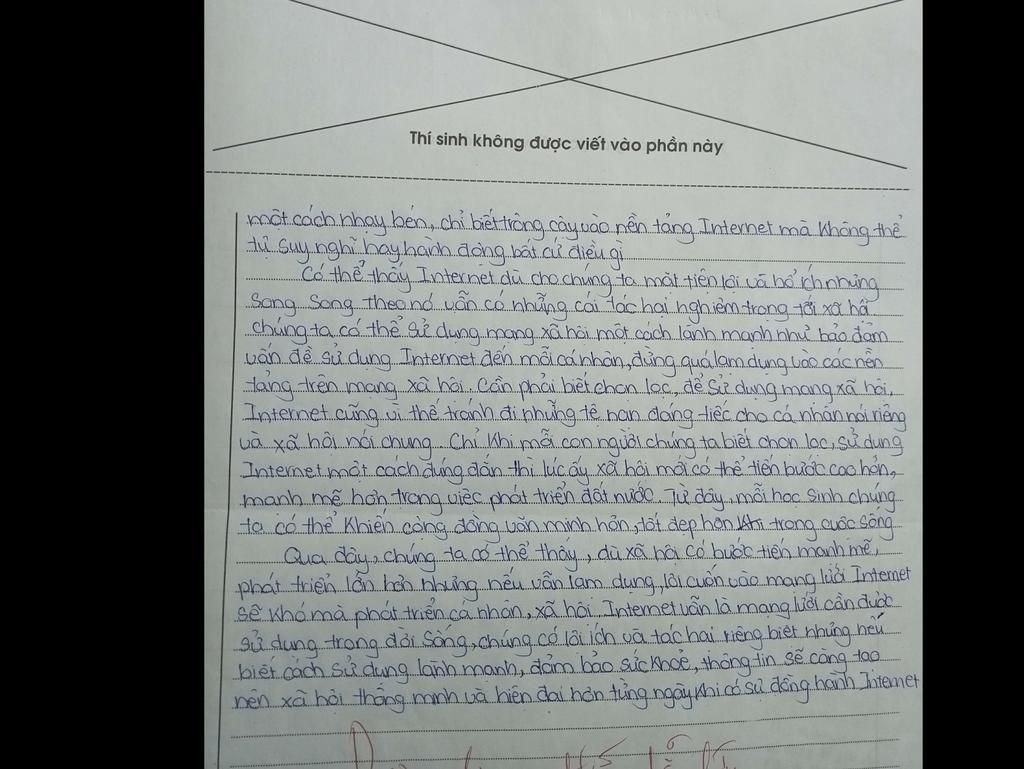 Thí sinh không được viết vào phần này
một cách nhạy bén, chỉ biết trông cậy vào nền tảng Internet mà không thể
tự suy nghĩ hay hành động bất cứ điều gì
Có thể thấy Internet dù cho chúng ta mặt tiện lợi và bổ ích nhưng
song song theo nó vẫn có những cái tác hại nghiêm trọng tới xã hội
chúng ta có thể sử dụng mạng xã hội một cách lành mạnh như bảo đảm
vấn đề sử dụng Internet đến mỗi cá nhân, đừng quá lạm dụng vào các nền
tảng trên mạng xã hội. Cần phải biết chọn lọc, để sử dụng mạng xã hội,
Internet cũng vì thế tránh đi những tệ nạn đáng tiếc cho cá nhân nói riêng
và xã hội nói chung. Chỉ khi mỗi con người chúng ta biết chọn lọc, sử dụng
Internet một cách đúng đắn thì lúc ấy xã hội mới có thể tiến bước cao hơn,
mạnh mẽ hơn trong việc phát triển đất nước. Từ đây, mỗi học sinh chúng
ta có thể khiến cộng đồng văn minh hơn, tốt đẹp hơn trong cuộc sống
Qua đây, chúng ta có thể thấy, dù xã hội có bước tiến mạnh mẽ,
phát triển lớn hơn nhưng nếu vẫn lạm dụng, lôi cuốn vào mạng lưới Internet
sẽ khó mà phát triển cá nhân, xã hội. Internet vẫn là mạng lưới cần được
sử dụng trong đời sống, chúng có lợi ích và tác hại riêng biệt nhưng nếu
biết cách sử dụng lành mạnh, đảm bảo sức khoẻ, thông tin sẽ càng tạo
nên xã hội thông minh và hiện đại hơn từng ngày khi có sự đồng hành Internet